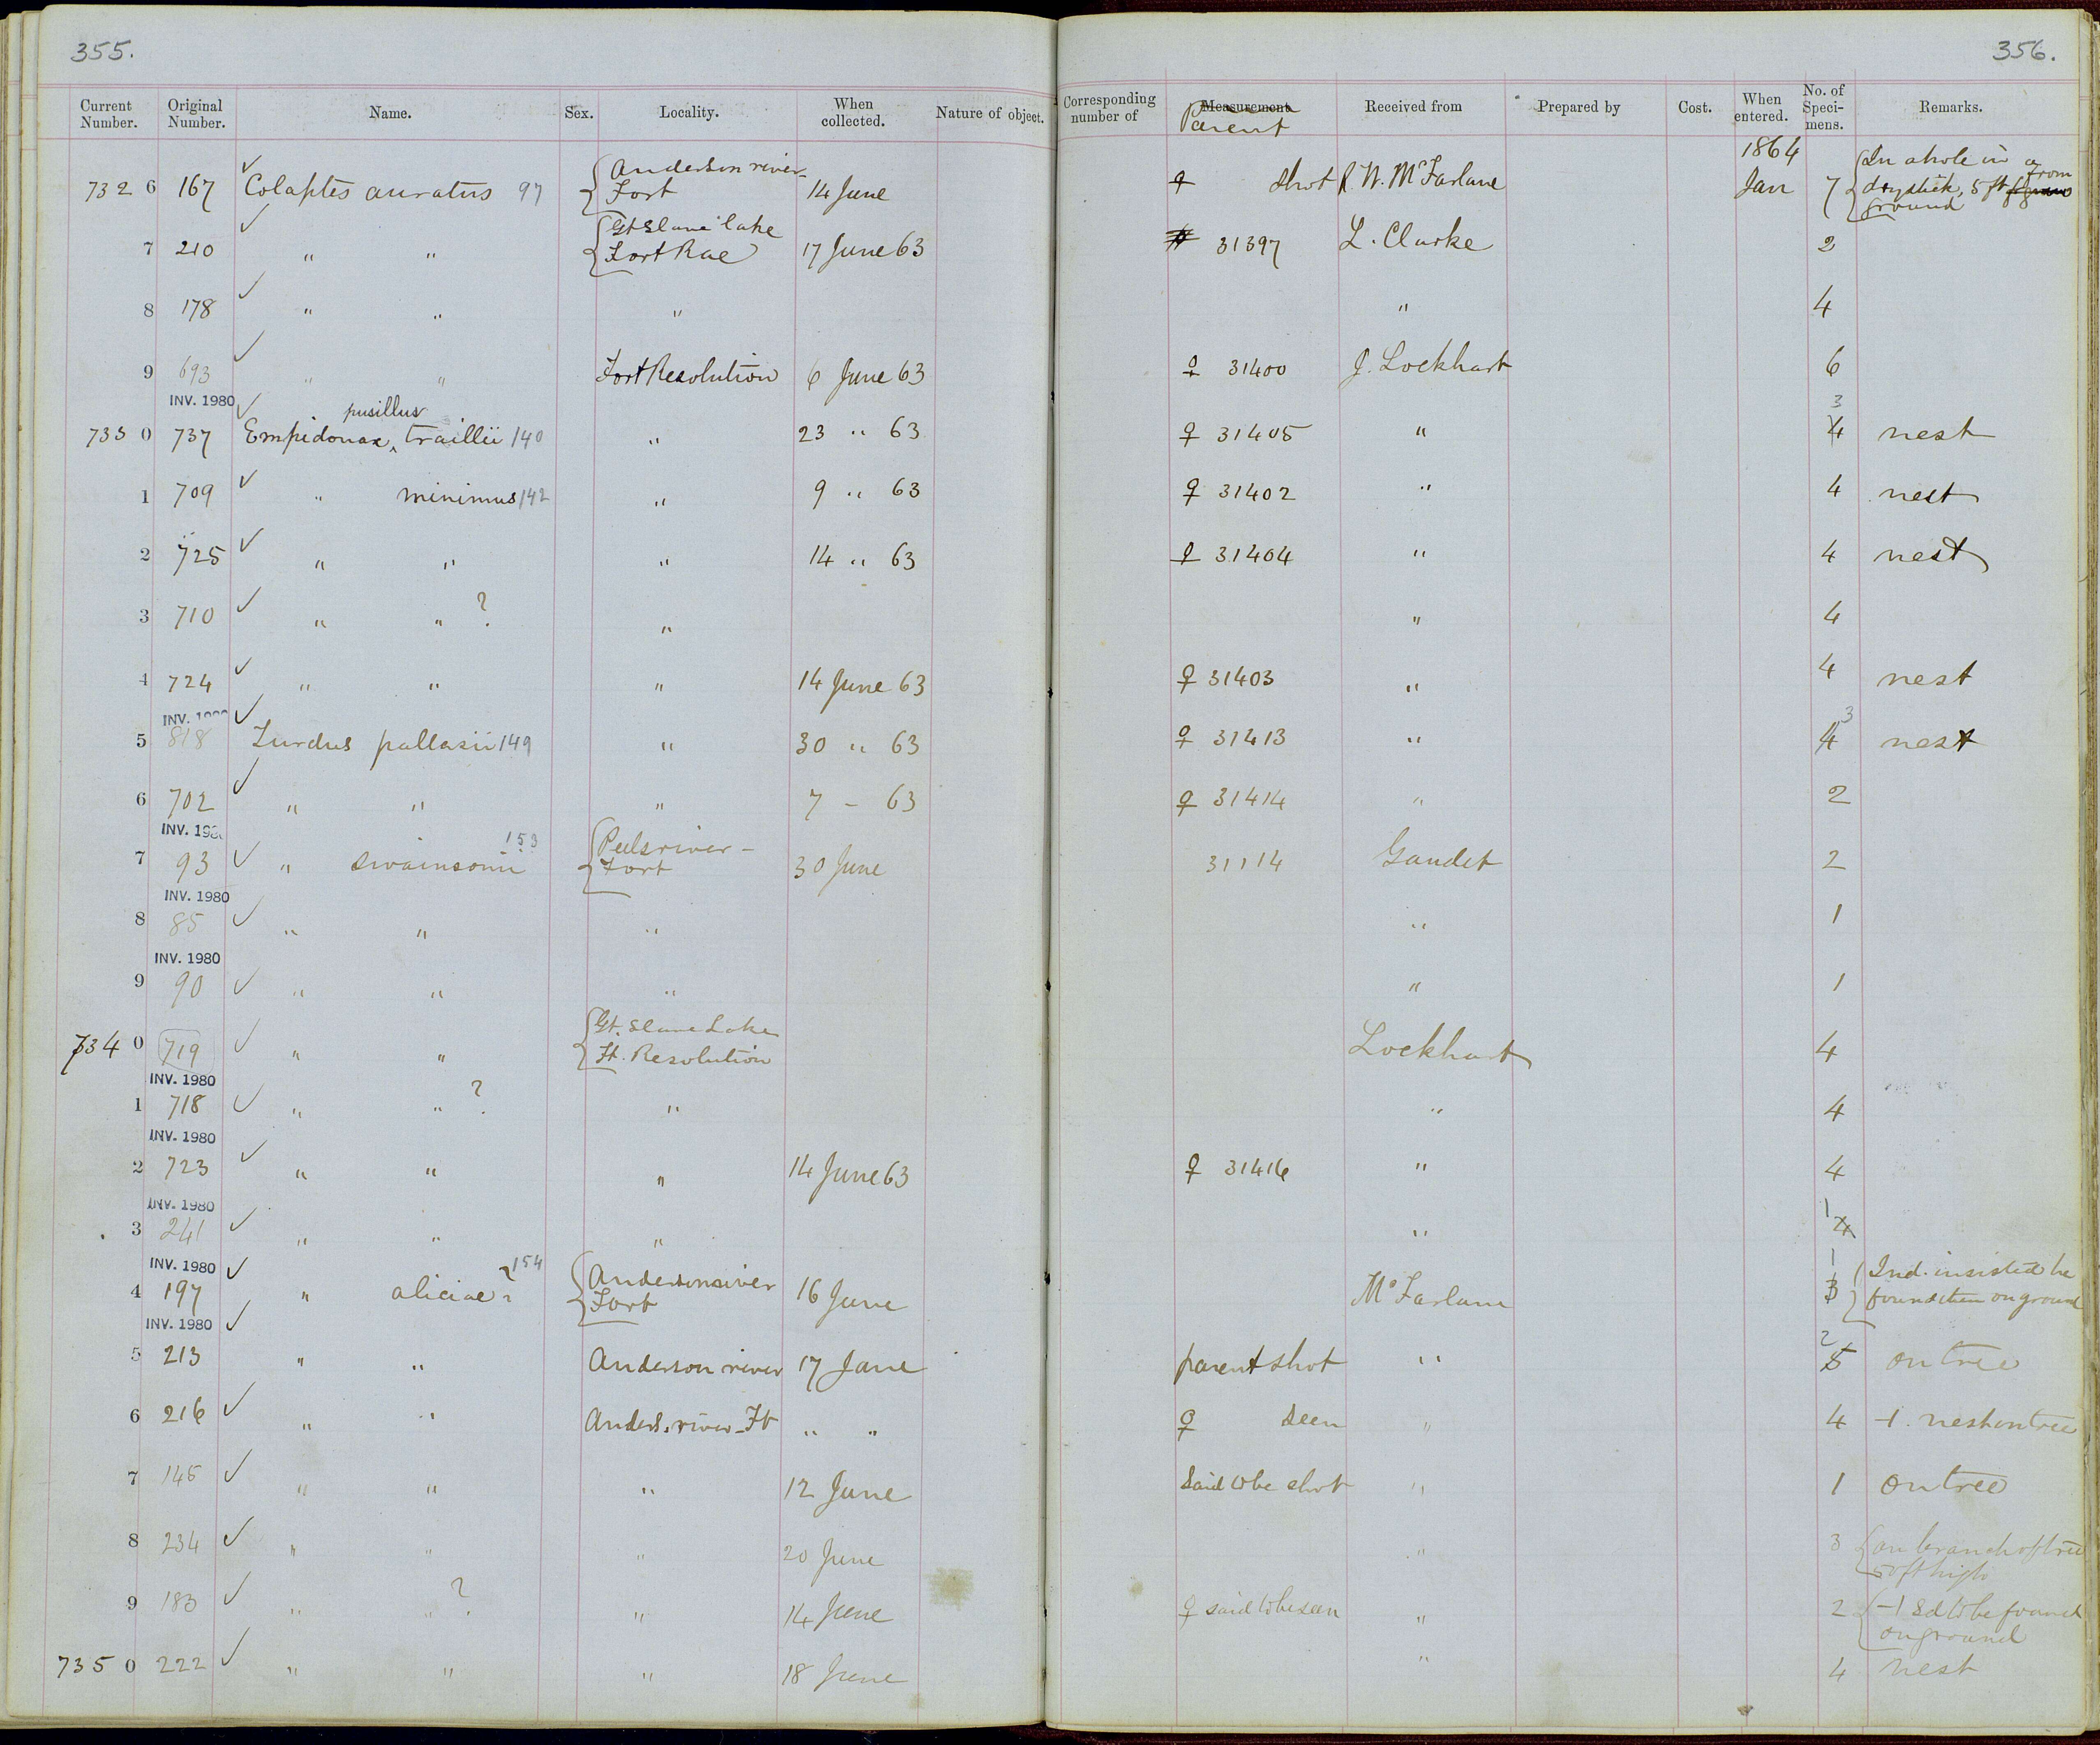 355.
356.
Current Number. Original Number. Name. Sex. Locality. When collected. Nature of object. Corresponding number of Measurement Parent Received from Prepared by Cost. When entered. No. of Speci-mens. Remarks.
732 6 167 ✓ Colaptes auratus 97 { Anderson river- Fort 14 June ♀ shot R. W. McFarlane 1864 Jan 7 { In a hole in a dry stick, 5 ft from ground
7 210 ✓ " " { Gt Slave lake Fort Rae 17 June 63 31397 L. Clarke 2
8 178 ✓ " " " " 4
9 693 ✓ " " Fort Resolution 6 June 63 ♀ 31400 J. Lockhart 6
INV. 1980
733 0 737 ✓ Empidonax ‸ pusillus traillii 140 " 23 " 63 ♀ 31405 " 4 3 nest
1 709 ✓ " minimus 142 " 9 " 63 ♀ 31402 " 4 nest
2 725 ✓ " " " 14 " 63 ♀ 31404 " 4 nest
3 710 ✓ " " ? " " 4
4 724 ✓ " " " 14 June 63 ♀ 31403 " 4 nest
INV. 1980
5 818 ✓ Turdus pallasii 149 " 30 " 63 ♀ 31413 " 4 3 nest
6 702 ✓ " " " 7 - 63 ♀ 31414 " 2
INV. 198
7 93 ✓ " swainsonii 153 { Peelsriver - Fort 30 June 31114 Gaudet 2
INV. 1980
8 85 ✓ " " " " 1
INV. 1980
9 90 ✓ " " " " 1
734 0 719 ✓ " " { Gt. Slave Lake Ft. Resolution Lockhart 4
INV. 1980
1 718 ✓ " " ? " " 4
INV. 1980
2 723 ✓ " " " 14 June 63 ♀ 31416 " 4
INV. 1980
3 241 ✓ " " " " 4 1
INV. 1980
4 197 ✓ " aliciae ? 154 { Anderson river Fort 16 June McFarlane 3 1 { Ind. insisted he found them on ground
INV. 1980
5 213 ✓ " " Anderson river 17 June parent shot " 5 2 on tree
6 216 ✓ " " Anders. river - Ft " " ♀ seen " 4 -1. nest on tree
7 145 ✓ " " " 12 June Said to be shot " 1 on tree
8 234 ✓ " " " 20 June " 3 { on branch of tree 5 ft high
9 183 ✓ " " ? " 14 June ♀ said to be seen " 2 { -1 Sd to be found on ground
735 0 222 ✓ " " " 18 June " 4 nest